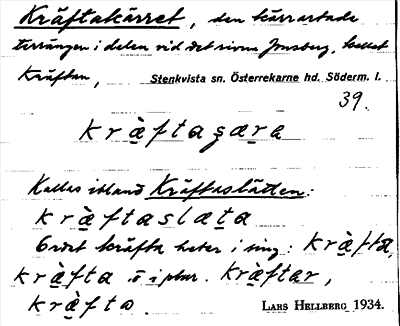 Kräftakärret, den kärrartade
terrängen i delen vid det rivna Jonsberg, kallat
Kräftan,
Stenkvista sn. Österrekarne hd. Söderm. l.
39.
kræ̀ftaʂæra
Kallas ibland Kräftaslätten:
kræ̀ftaslæta
Ordet kräfta heter i sing: kræ̀fta,
kræ̀fta. o i plur. kræ̀ftar,
kræ̀fta.
LARS HELLBERG 1934.